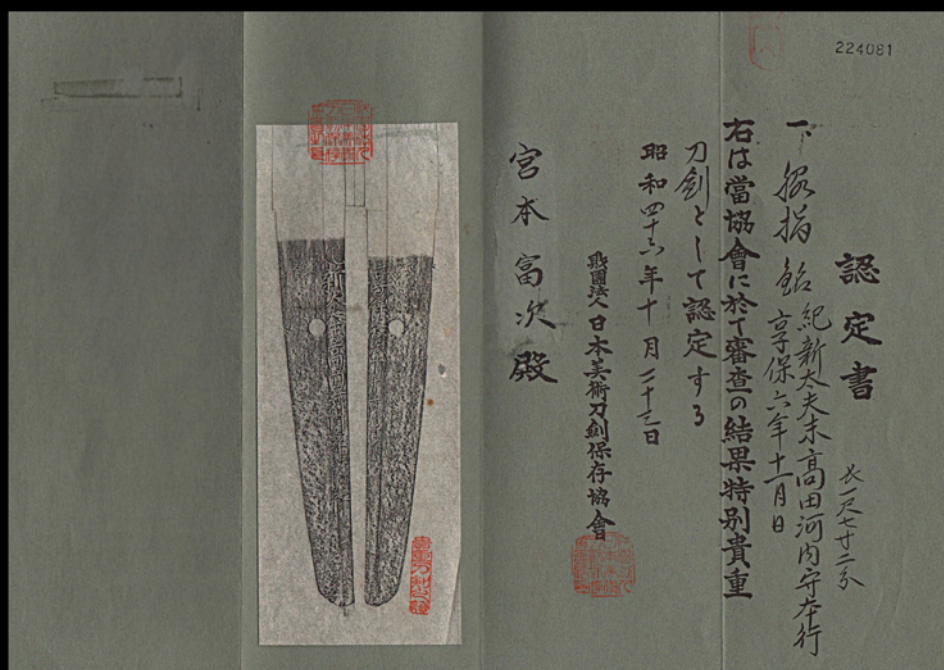 224081
認定書
一、脇指 銘 紀新太夫末高田河内守本行
享保六年十一月日
長一尺七寸二分
右は當協會に於て審査の結果特別貴重
刀劍として認定する
昭和四十六年十月二十三日
財團法人日本美術刀劍保存協會
宮本富次殿